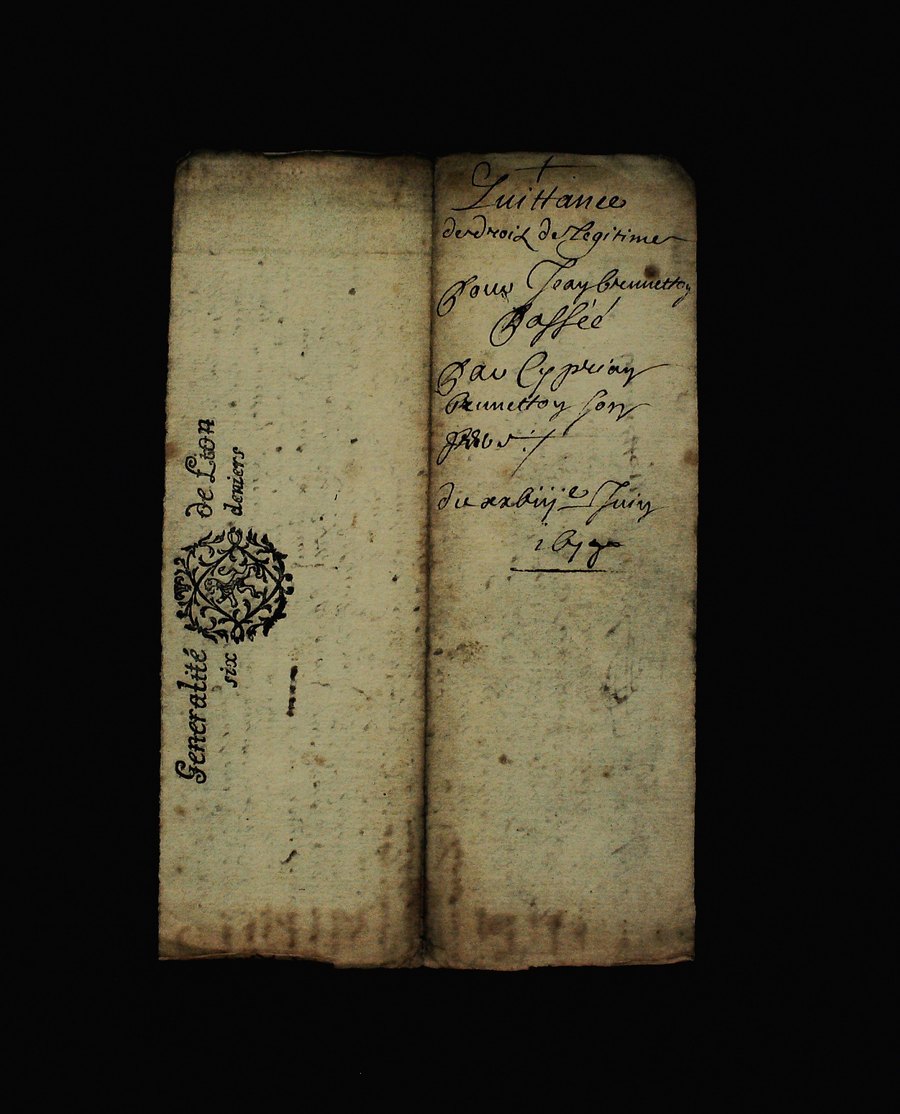 Generalité de Lion
six deniers
Quittance
de droit de Legitime
Pour Jean brunetton
Passée
Par Cyprian
brunetton son
du xxbiije Juin